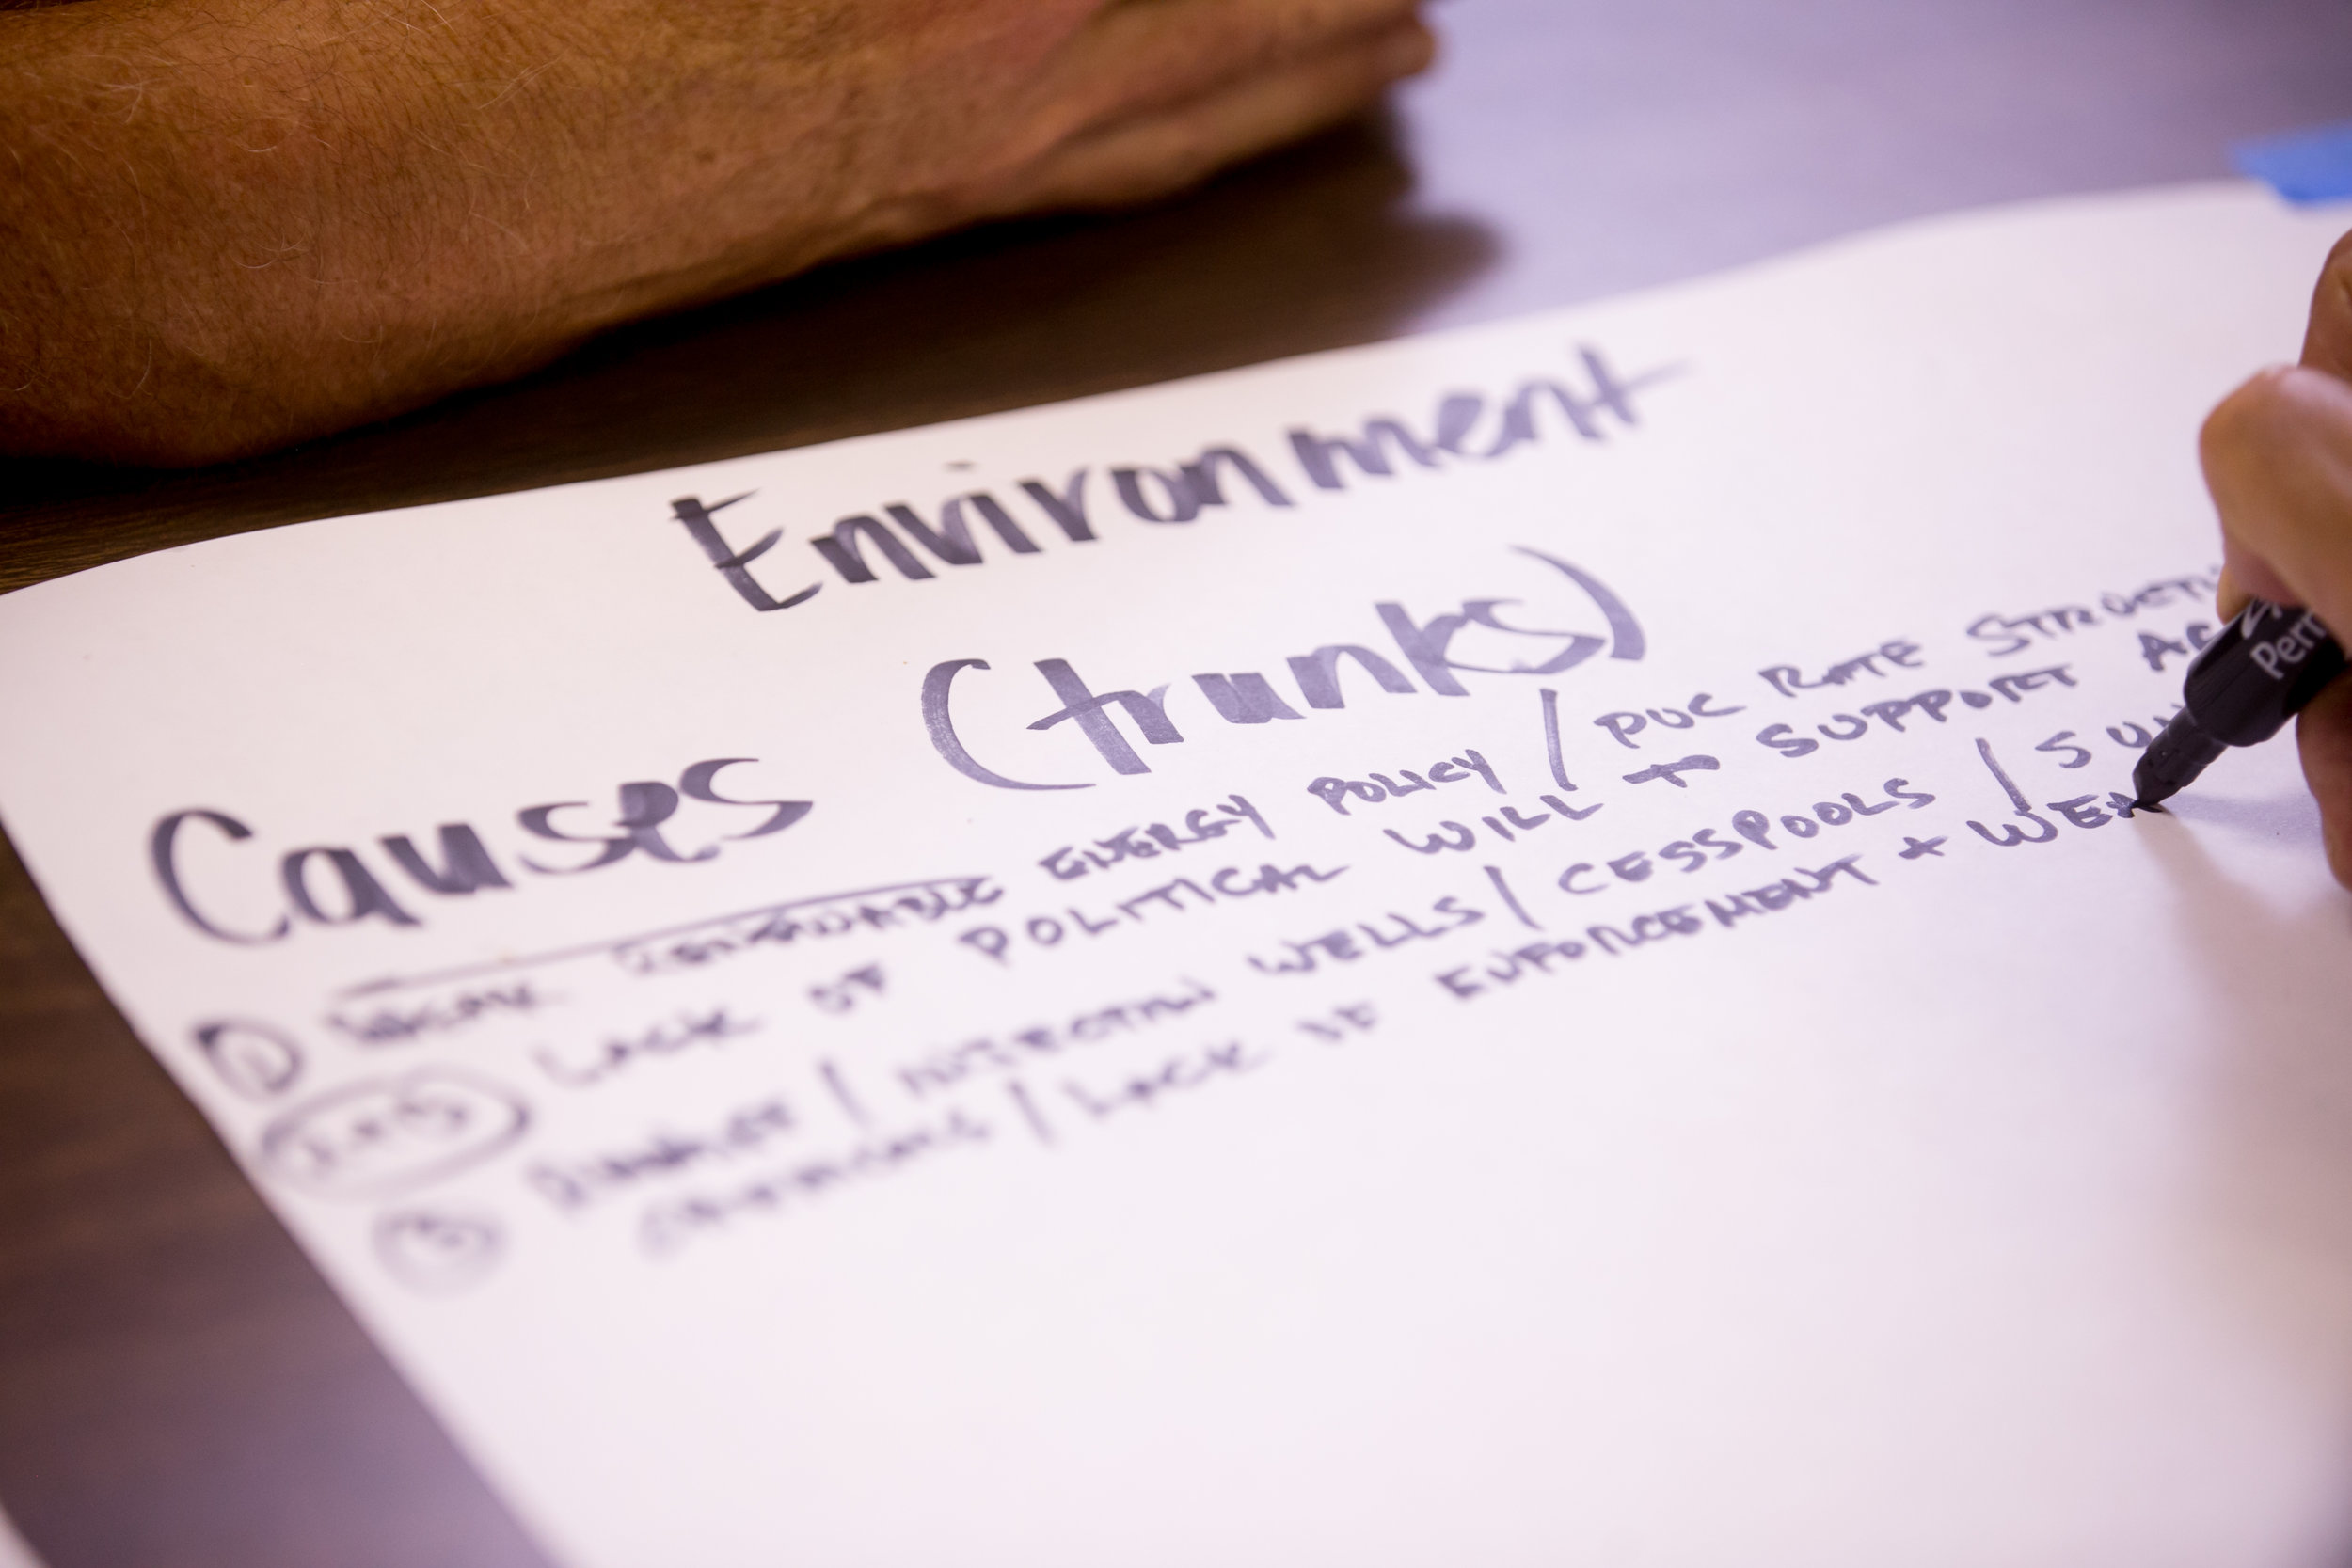 Environment
Causes (trunks)
① WEAK RENEWABLE ENERGY POLICY / PUC RATE STRUCTU
1+3 LACK OF POLITICAL WILL → SUPPORT AG
③ RUNOFF / INJECTION WELLS / CESSPOOLS / SUN
CHEMICALS / LACK OF ENFORCEMENT + WEA
Perm